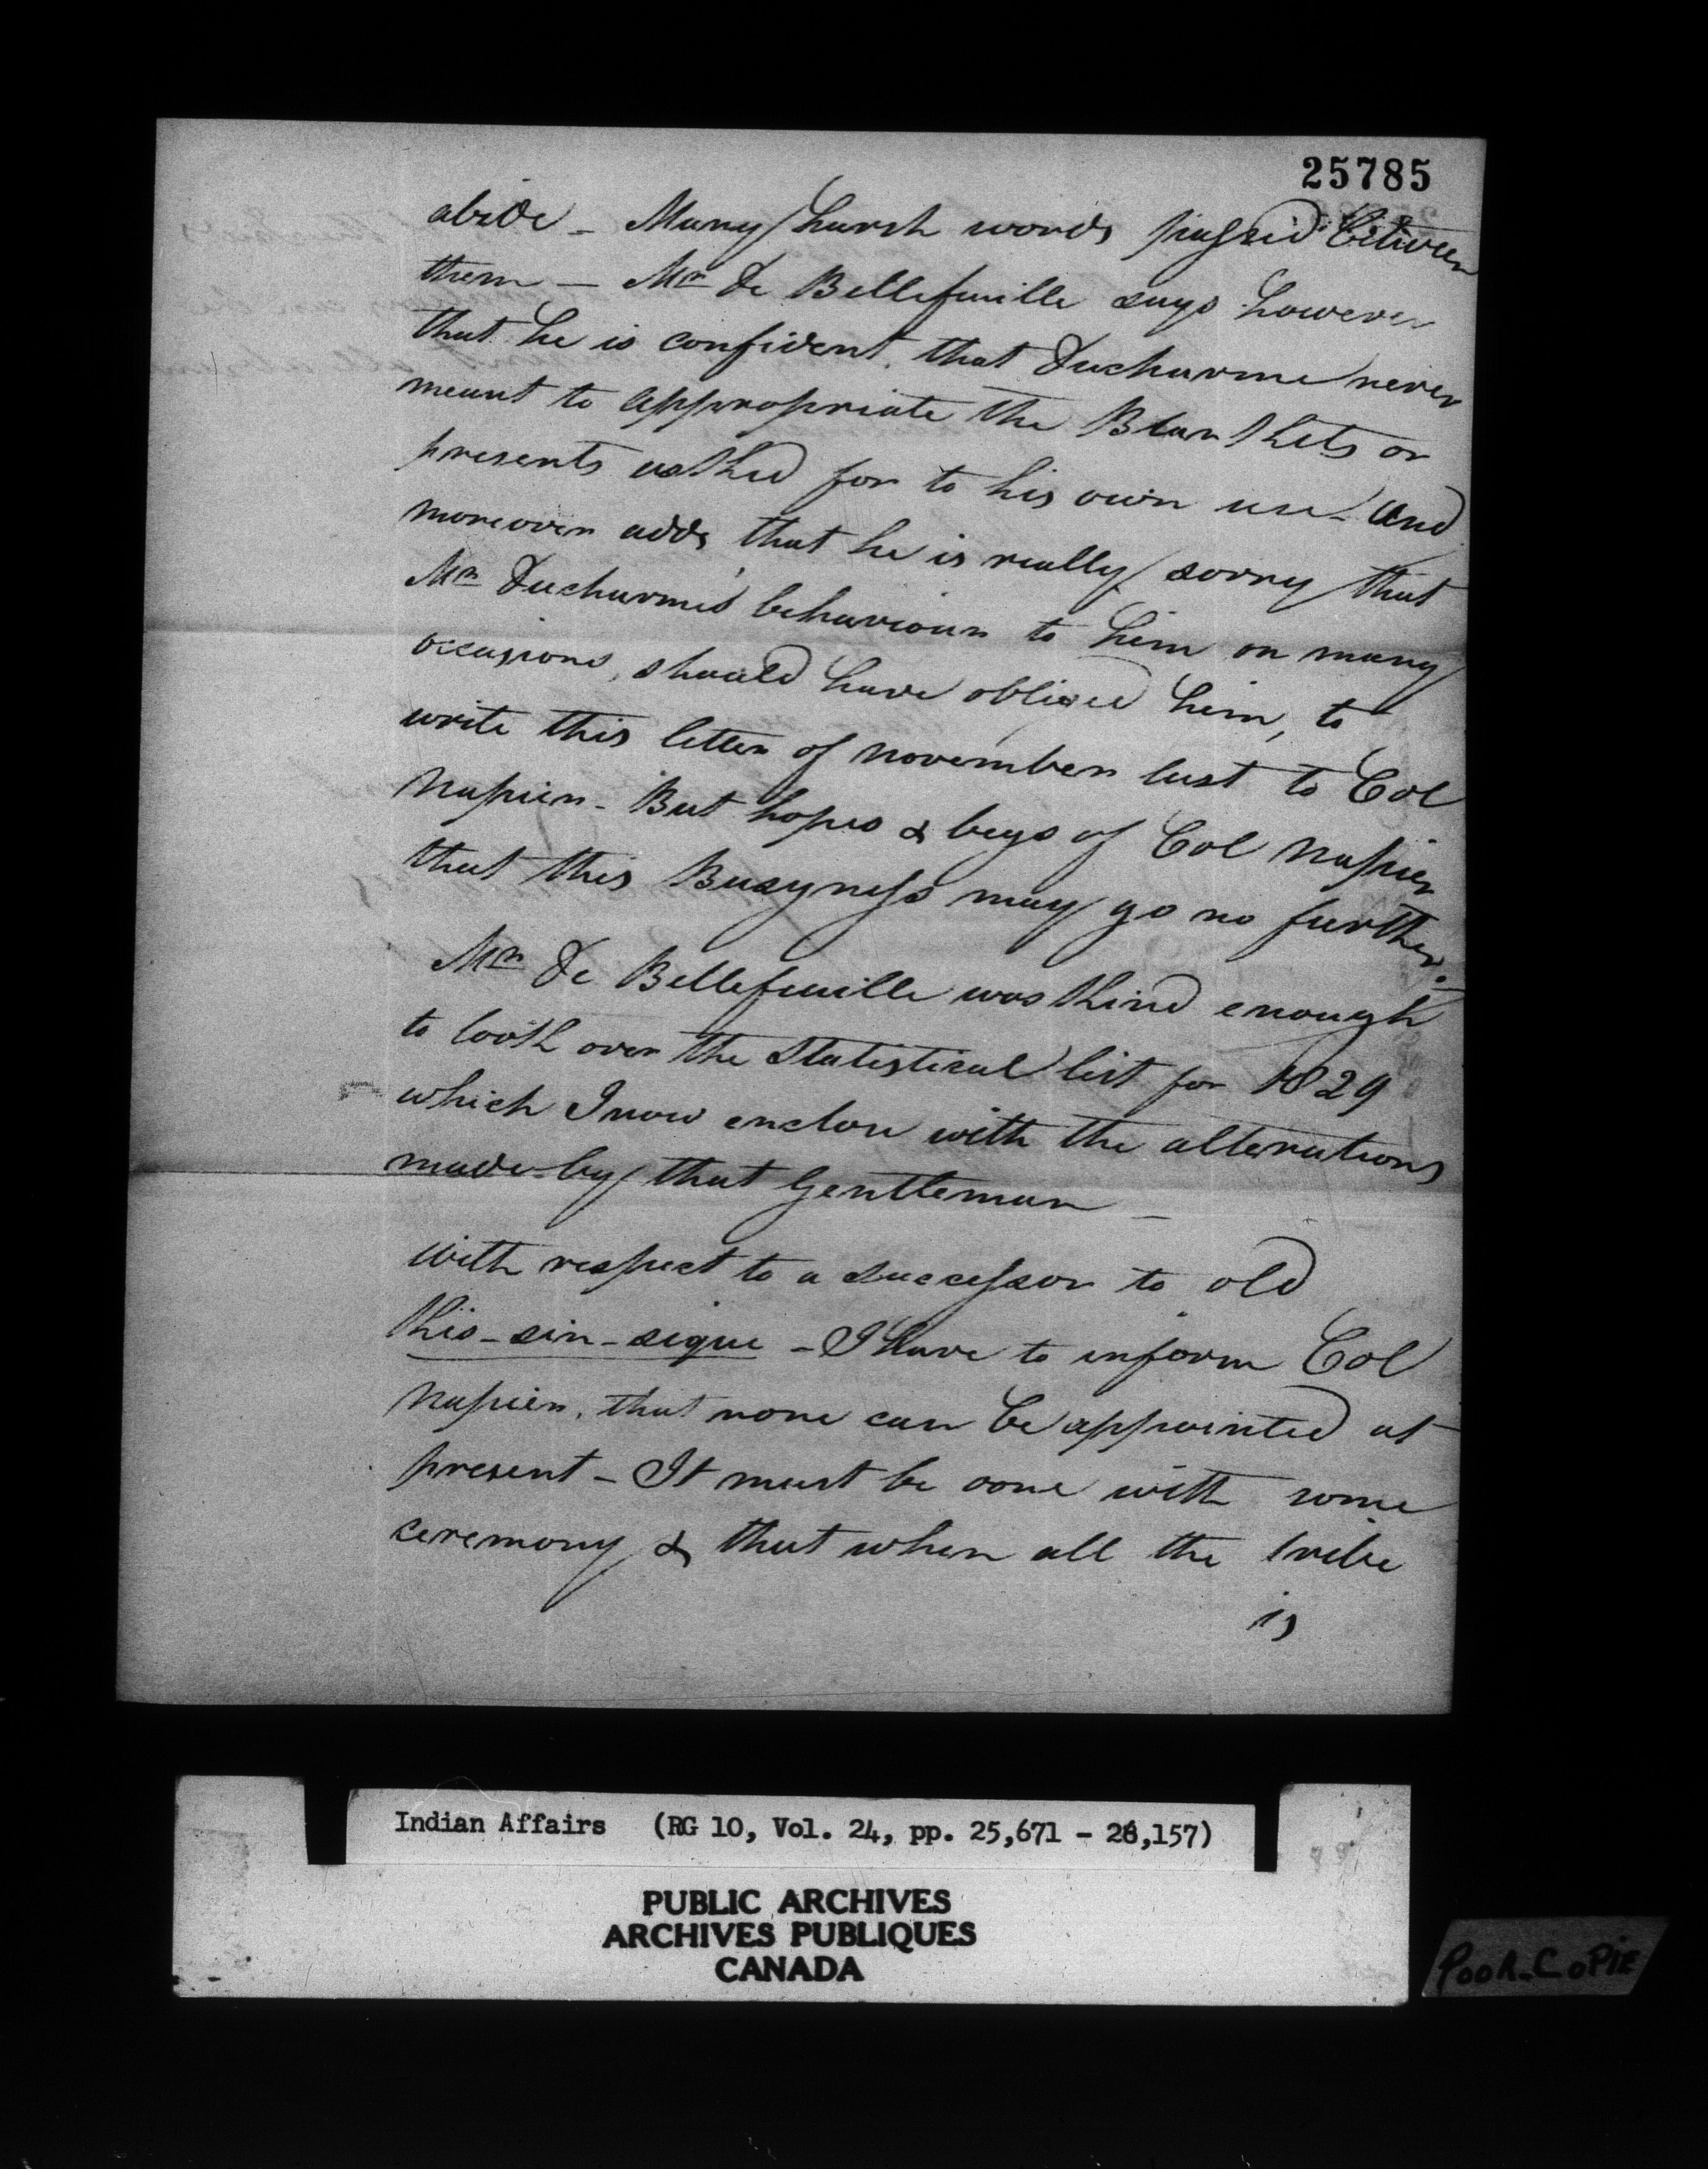 25785
abide - Many harsh words passed between
them - Mr De Bellefeuille says however
that he is confident, that Ducharme never
meant to appropriate the Blankets or
presents asked for to his own use - And
moreover adds that he is really sorry that
Mr Ducharme's behaviour to him on many
occasions, should have obliged him, to
write this letter of november last to Col
Napier - But hopes & begs of Col Napier
that this Busyness may go no further.
Mr De Bellefeuille was kind enough
to look over the Statistical list for 1829
which I now enclose with the alterations
made by that Gentleman -
with respect to a Successor to old
Kis-sin-sique - I have to inform Col
Napier, that none can be appointed at
present - It must be done with some
ceremony & that when all the tribe
is
Indian Affairs (RG 10, Vol. 24, pp. 25,671 - 26,157)
PUBLIC ARCHIVES
ARCHIVES PUBLIQUES
CANADA
POOR-COPIE